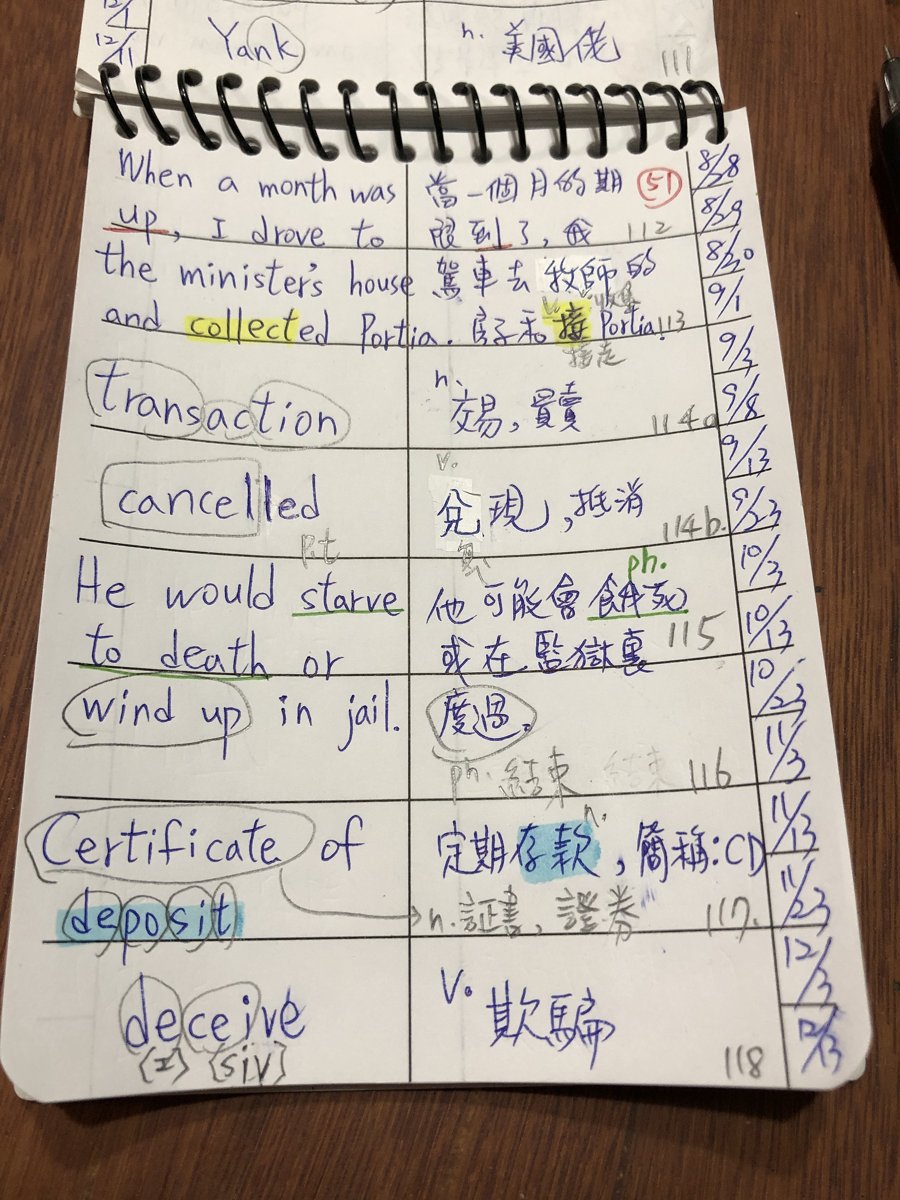 12/1
12/11 Yank n. 美國佬 111
When a month was 當一個月的期 51 8/28
up, I drove to 限到了，我 112 8/29
the minister's house 駕車去牧師的 8/30
and collected Portia. 房子和接 Portia. 113 9/1
v. 收集
接走 9/3
transaction n. 交易，買賣 114a 9/8
v. 9/13
cancelled 兌現，抵消 114b. 9/23
p.t
ph. 10/3
He would starve 他可能會餓死
to death or 或在監獄裏 115 10/13
wind up in jail. 度過。 10/23
ph. 結束 結束 116 11/3
n. 11/13
Certificate of 定期存款，簡稱：CD
deposit n. 証書，證券 117. 11/23
12/3
deceive v. 欺騙 12/13
[I] [siv] 118